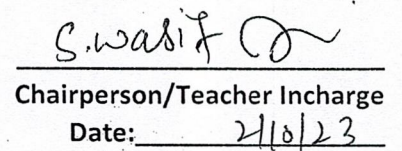 S.Wasif
Chairperson/Teacher Incharge
Date: 2/10/23